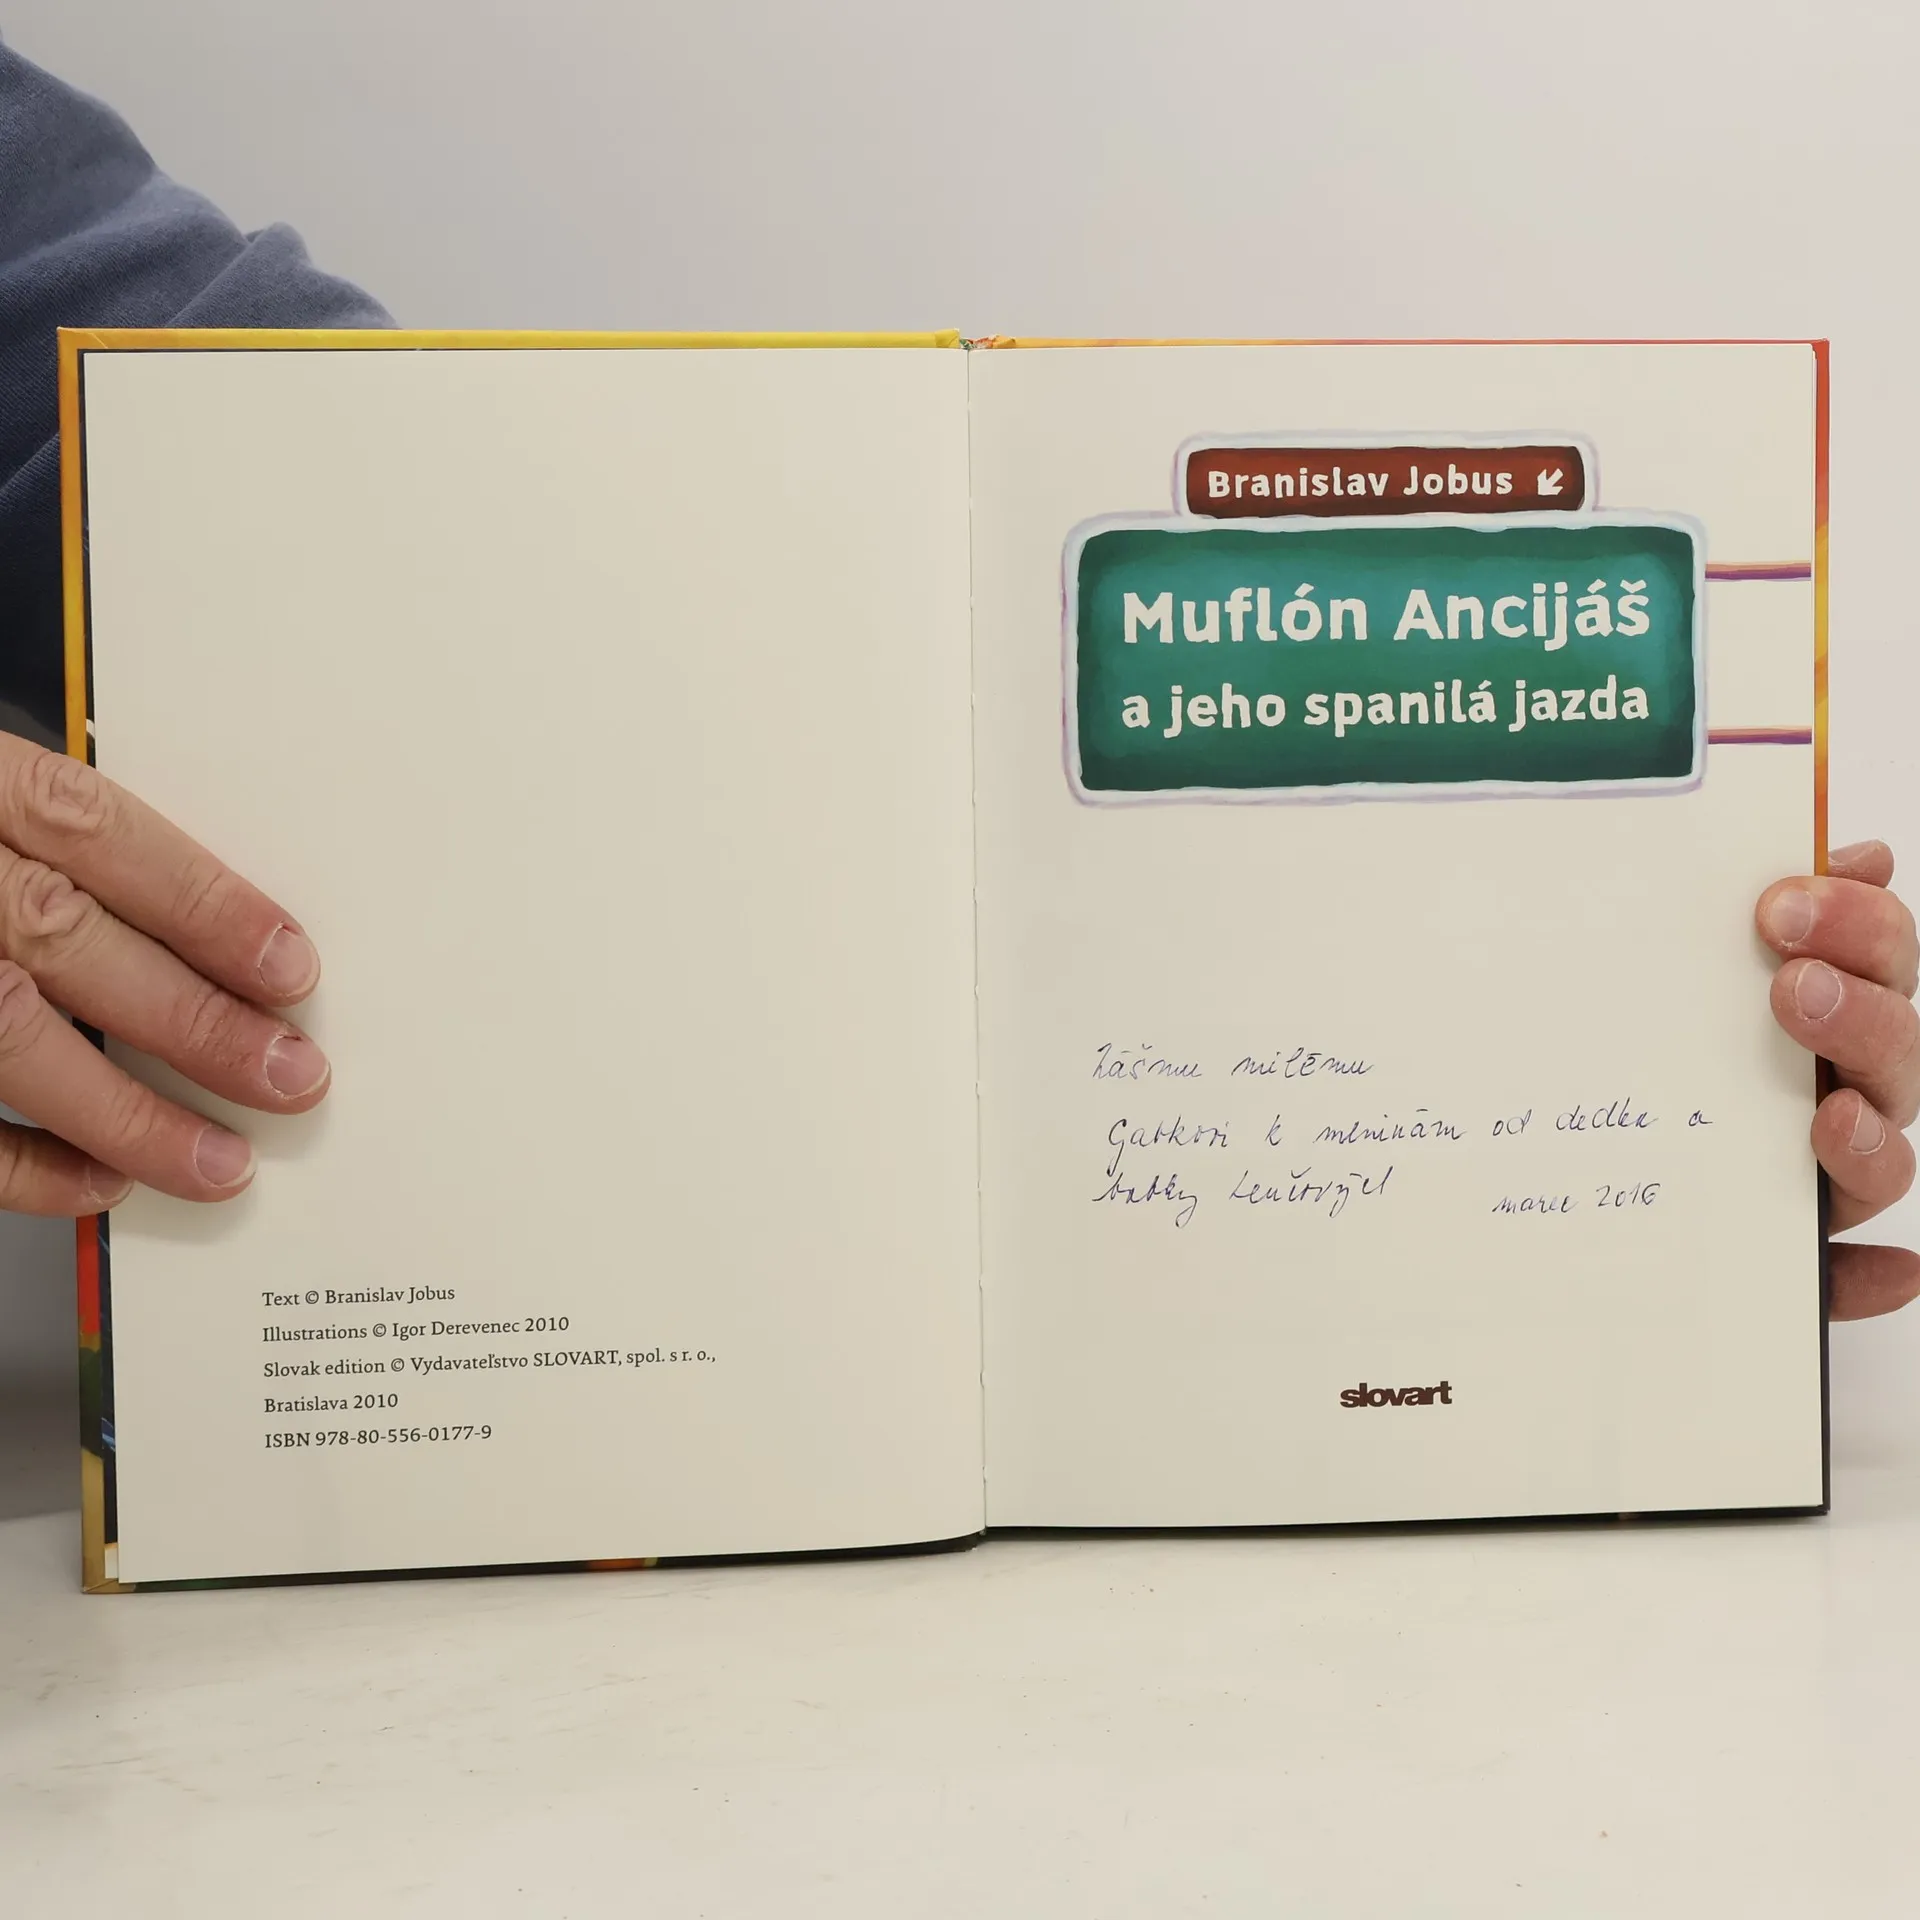 Text © Branislav Jobus
Illustrations © Igor Derevenec 2010
Slovak edition © Vydavateľstvo SLOVART, spol. s r. o.,
Bratislava 2010
ISBN 978-80-556-0177-9
Branislav Jobus
Muflón Ancijáš
a jeho spanilá jazda
milému
Gabkovi k meninám od dedka a
babky
marec 2016
slovart